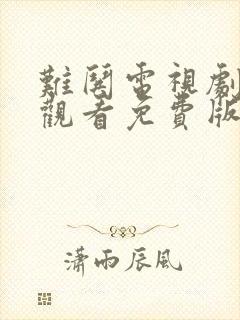 難闋電視劇
觀看免費版
瀟雨辰風